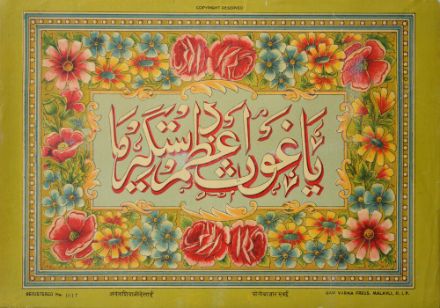 COPYRIGHT RESERVED
یا غوث اعظم دستگیر ما
REGISTERED No. 1017
RAM VARMA PRESS, MALAVLI, G.I.P.